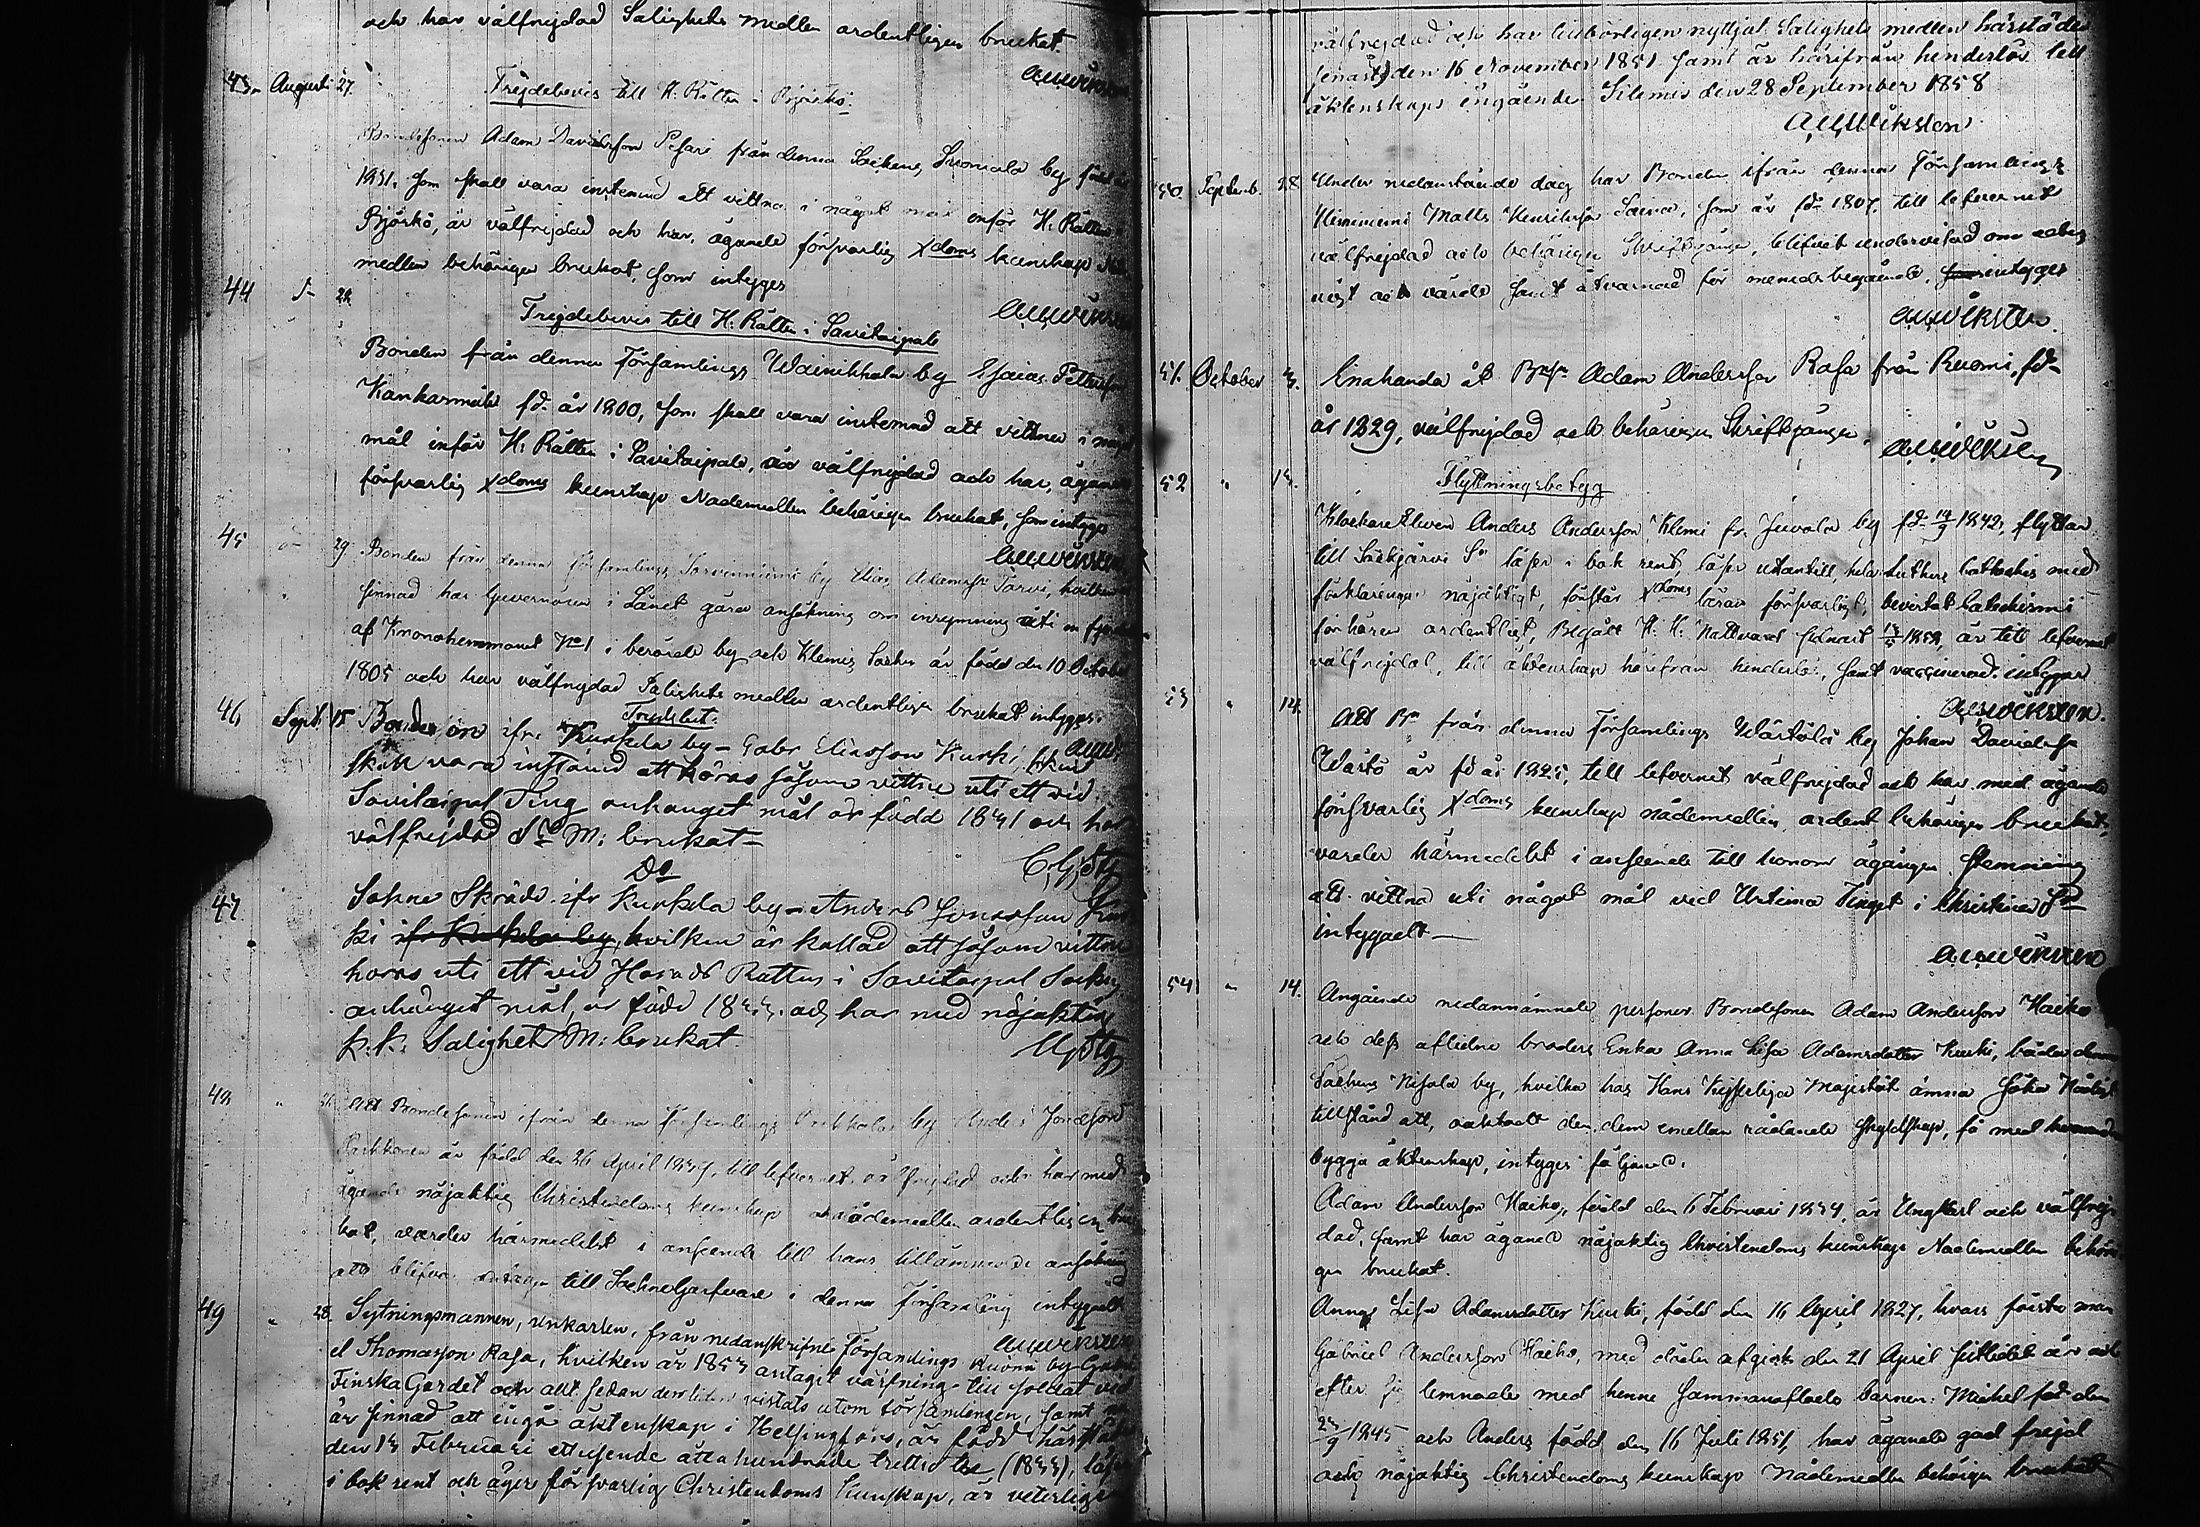 och har välfrejdad Salighets medlen ordentligen brukat.
43. Augusti 27.
Frejdebevis till H. Rätten i Björkö
Bondesonen Adam Davidsson Pesari från denna Sockens Suomala by född år
1831. som skall vara instemd att vittna i något mål inför H. Rätten i
Björkö, är välfrejdad och har, ägande försvarlig Xdoms kunskap
medlen behörigen brukat, som intyges
44 28.
Frejdebevis till H. Rätten i Savitaipale
Bonden från denna Församlings Wainikkala by Esaias Pettersson
Kankarmäki fd. år 1800, som skall vara instemnd att vittna i något
mål inför H. Rätten i Savitaipale, är välfrejdad och har, ägande
försvarlig Xdoms kunskap Nademedlen behörigen brukat, som intyges
45 29.
Bonden från denna församlings by Elias Adamss. Tarvi, hvilken
sinnad hos Guvernören i Länet göra ansökning om inrymning uti en
af Kronohemmanet No 1 i berörde by och Klemis Socken är född den 10 October
1805 och har välfrejdad Salighets medlen ordentligen brukat intyges.
46 Sept. 15
Frejdebet.
Bondeson ifr. Kurkela by - Gabr. Eliasson Kurki,
skall vara instämd att höras såsom vittne uti ett vid
Savitaipal Ting anhänget mål är född 1831 och har
välfrejdad M: brukat -
47
Do
Sokne Skräd. ifr Kurkela by - Anders Jonasson Kur
ki ifr Kurkela by, hvilken är kallad att såsom vittne
höras uti ett vid Härads Rätten i Savitaipal Socken
anhänget mål, är född 1833. och har med nöjaktig
k.k. Salighets M: brukat
48
Att Bondesonen ifrån denna Församlings by Anders Jonasson
Parkkonen är född den 26 April 1839, till lefvernet välfrejdad och har med
ägande nöjaktig Christendoms kunskap nådemedlen ordentligen bru
kat, varder härmedelst i anseende till hans tillämnade ansökning
att blifva antagen till Sockne Garfvare i denna Församling intygadt
49 28.
Sytningsmannen, unkarlen, från nedanskrifne Församlings Ruomi by Gabri
el Thomasson Rasa, hvilken år 1853 antagit värfning till soldat vid
Finska Gardet och allt sedan den tiden vistats utom församlingen, samt
är sinnad att ingå äktenskap i Helsingfors, är född härstädes
den 13 Februari ettusende åttahundrade trettio tre (1833), läser
i bok rent och äger försvarlig Christendoms Kunskap, är veterligen
välfrejdad och har tillbörligen nyttjat Salighets medlen härstädes
senast) den 16 November 1851 samt är härifrån hinderslös till
äktenskaps ingående. Silemis den 28 September 1858
A.W. Wiksten
50. Septemb. 28
Under nedanstående dag har Bonden ifrån denna Församlings
Niininiemi Matts Henriksson Saina, som är fd. 1807. till lefvernet
välfrejdad och behörigen Skriftgången, blifvit undervisad om edens
vigt och värde samt åtvarnad för meneds begående, som intyges
51. October 3.
Enahanda åt Bsn Adam Andersson Rasa från Ruomi, fd-
år 1829, välfrejdad och behörigen Skriftgången.
52 " 13.
Flyttningsbetyg
Klockare Eleven Anders Andersson Klemi fr. Juvola by fd. 1842, flyttar
till Säkkjärvi Sn läser i bok rent, läser utantill, hela Luthers Cathekes med
förklaringen nöjaktigt, förstår Xdoms läran försvarligt, bevistat Catechismi
förhören ordentligt, Begått H. H. Nattvard sednast 1858, är till lefvernet
välfrejdad, till äktenskap härifrån hinderslös, samt vaccinerad. intygar
53 " 14.
Att Bn från denna Församlings Wärtölä by Johan Davidsson
Wärtö är fd år 1825, till lefvernet välfrejdad och har med ägande
försvarlig Xdoms kunskap nådemedlen ordent. behörigen brukat,
varder härmedelst i anseende till honom ågången stemning
att vittna uti något mål vid Urtima Tinget i Christina Sn
intygadt -
54 " 14.
Angående nedannämnde personer Bondesonen Adam Andersson Haiko
och dess aflidne broders Enka Anna Lisa Adamsdotter Kurki, båda från denna
Sockens Nisola by, hvilka hos Hans Kejserliga Majestät ämna söka Nådigt
tillstånd att, oaktadt den dem emellan rådande skyldskap, få med
bygga äktenskap, intyges följande.
Adam Andersson Haiko, född den 6 Februari 1834, är Ungkarl och välfrej
dad, samt har ägande nöjaktig Christendoms kunskap Nademedlen behöri
gen brukat.
Anna Lisa Adamsdotter Kurki, född den 16 April 1827, hvars förste man
Gabriel Andersson Haiko, med döden afgick den 21 April sistlidet år och
efter sig lemnade med henne sammanaflade barnen: Mickel född den
1845 och Anders född den 16 Juli 1851, har ägande god frejd
och nöjaktig Christendoms kunskap Nådemedlen behörigen brukat